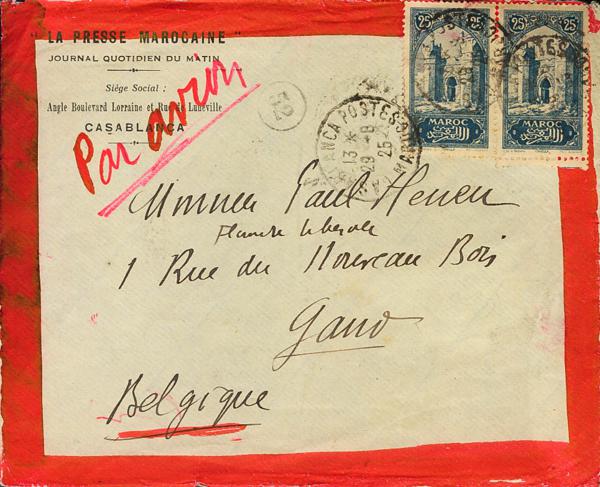 "LA PRESSE MAROCAINE"
JOURNAL QUOTIDIEN DU MATIN
Siège Social :
Angle Boulevard Lorraine et Rue de Lunéville
CASABLANCA
Par avion
25c 25c
MAROC
25c 25c
MAROC
52
CASABLANCA POSTES
13 *
29 -8
25
MAROC
Monsieur Paul
Flandre libérale
1 Rue du Nouveau Bois
Gand
Belgique